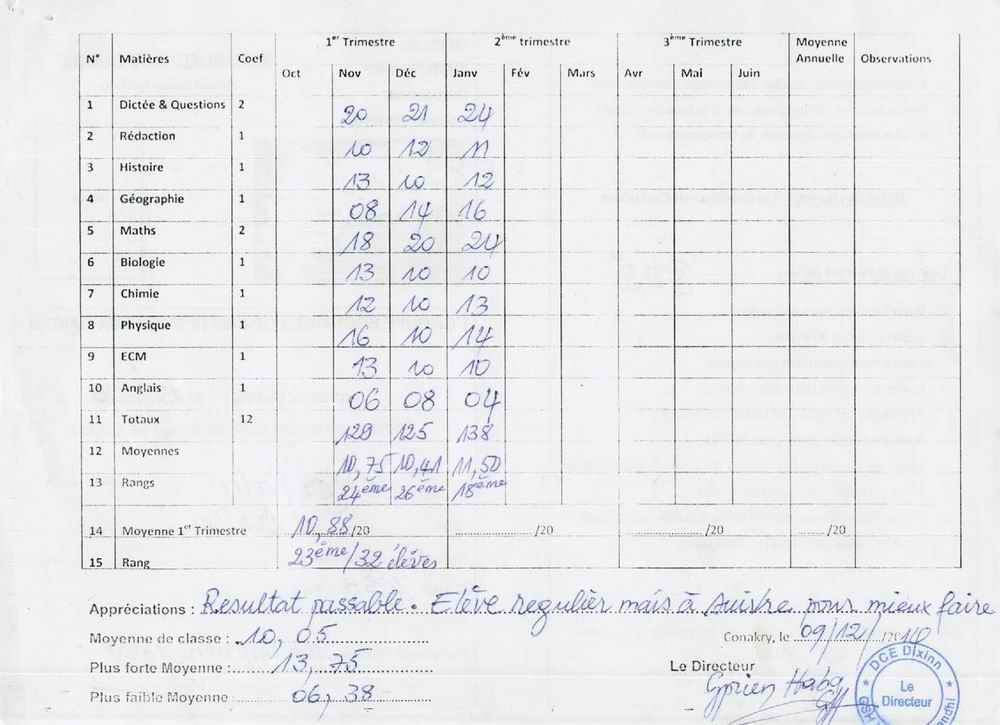 1er Trimestre 2ème trimestre 3ème Trimestre Moyenne Annuelle
N° Matières Coef Oct Nov Déc Janv Fév Mars Avr Mai Juin Observations
1 Dictée & Questions 2 20 21 24
2 Rédaction 1 10 12 11
3 Histoire 1 13 10 12
4 Géographie 1 08 14 16
5 Maths 2 18 20 24
6 Biologie 1 13 10 10
7 Chimie 1 12 10 13
8 Physique 1 16 10 14
9 ECM 1 13 10 10
10 Anglais 1 06 08 04
11 Totaux 12 129 125 138
12 Moyennes 10,75 10,41 11,50
13 Rangs 24ème 26ème 18ème
14 Moyenne 1er Trimestre 10,88/20 /20 /20 /20
15 Rang 23ème/32 élèves
Appréciations : Resultat passable. Elève regulier mais à suivre pour mieux faire
Moyenne de classe : 10,05
Conakry, le 09/12/2010
Plus forte Moyenne : 13,75
Le Directeur
Plus faible Moyenne : 06,38
Cyprien Haba
DCE Dixinn
Le Directeur